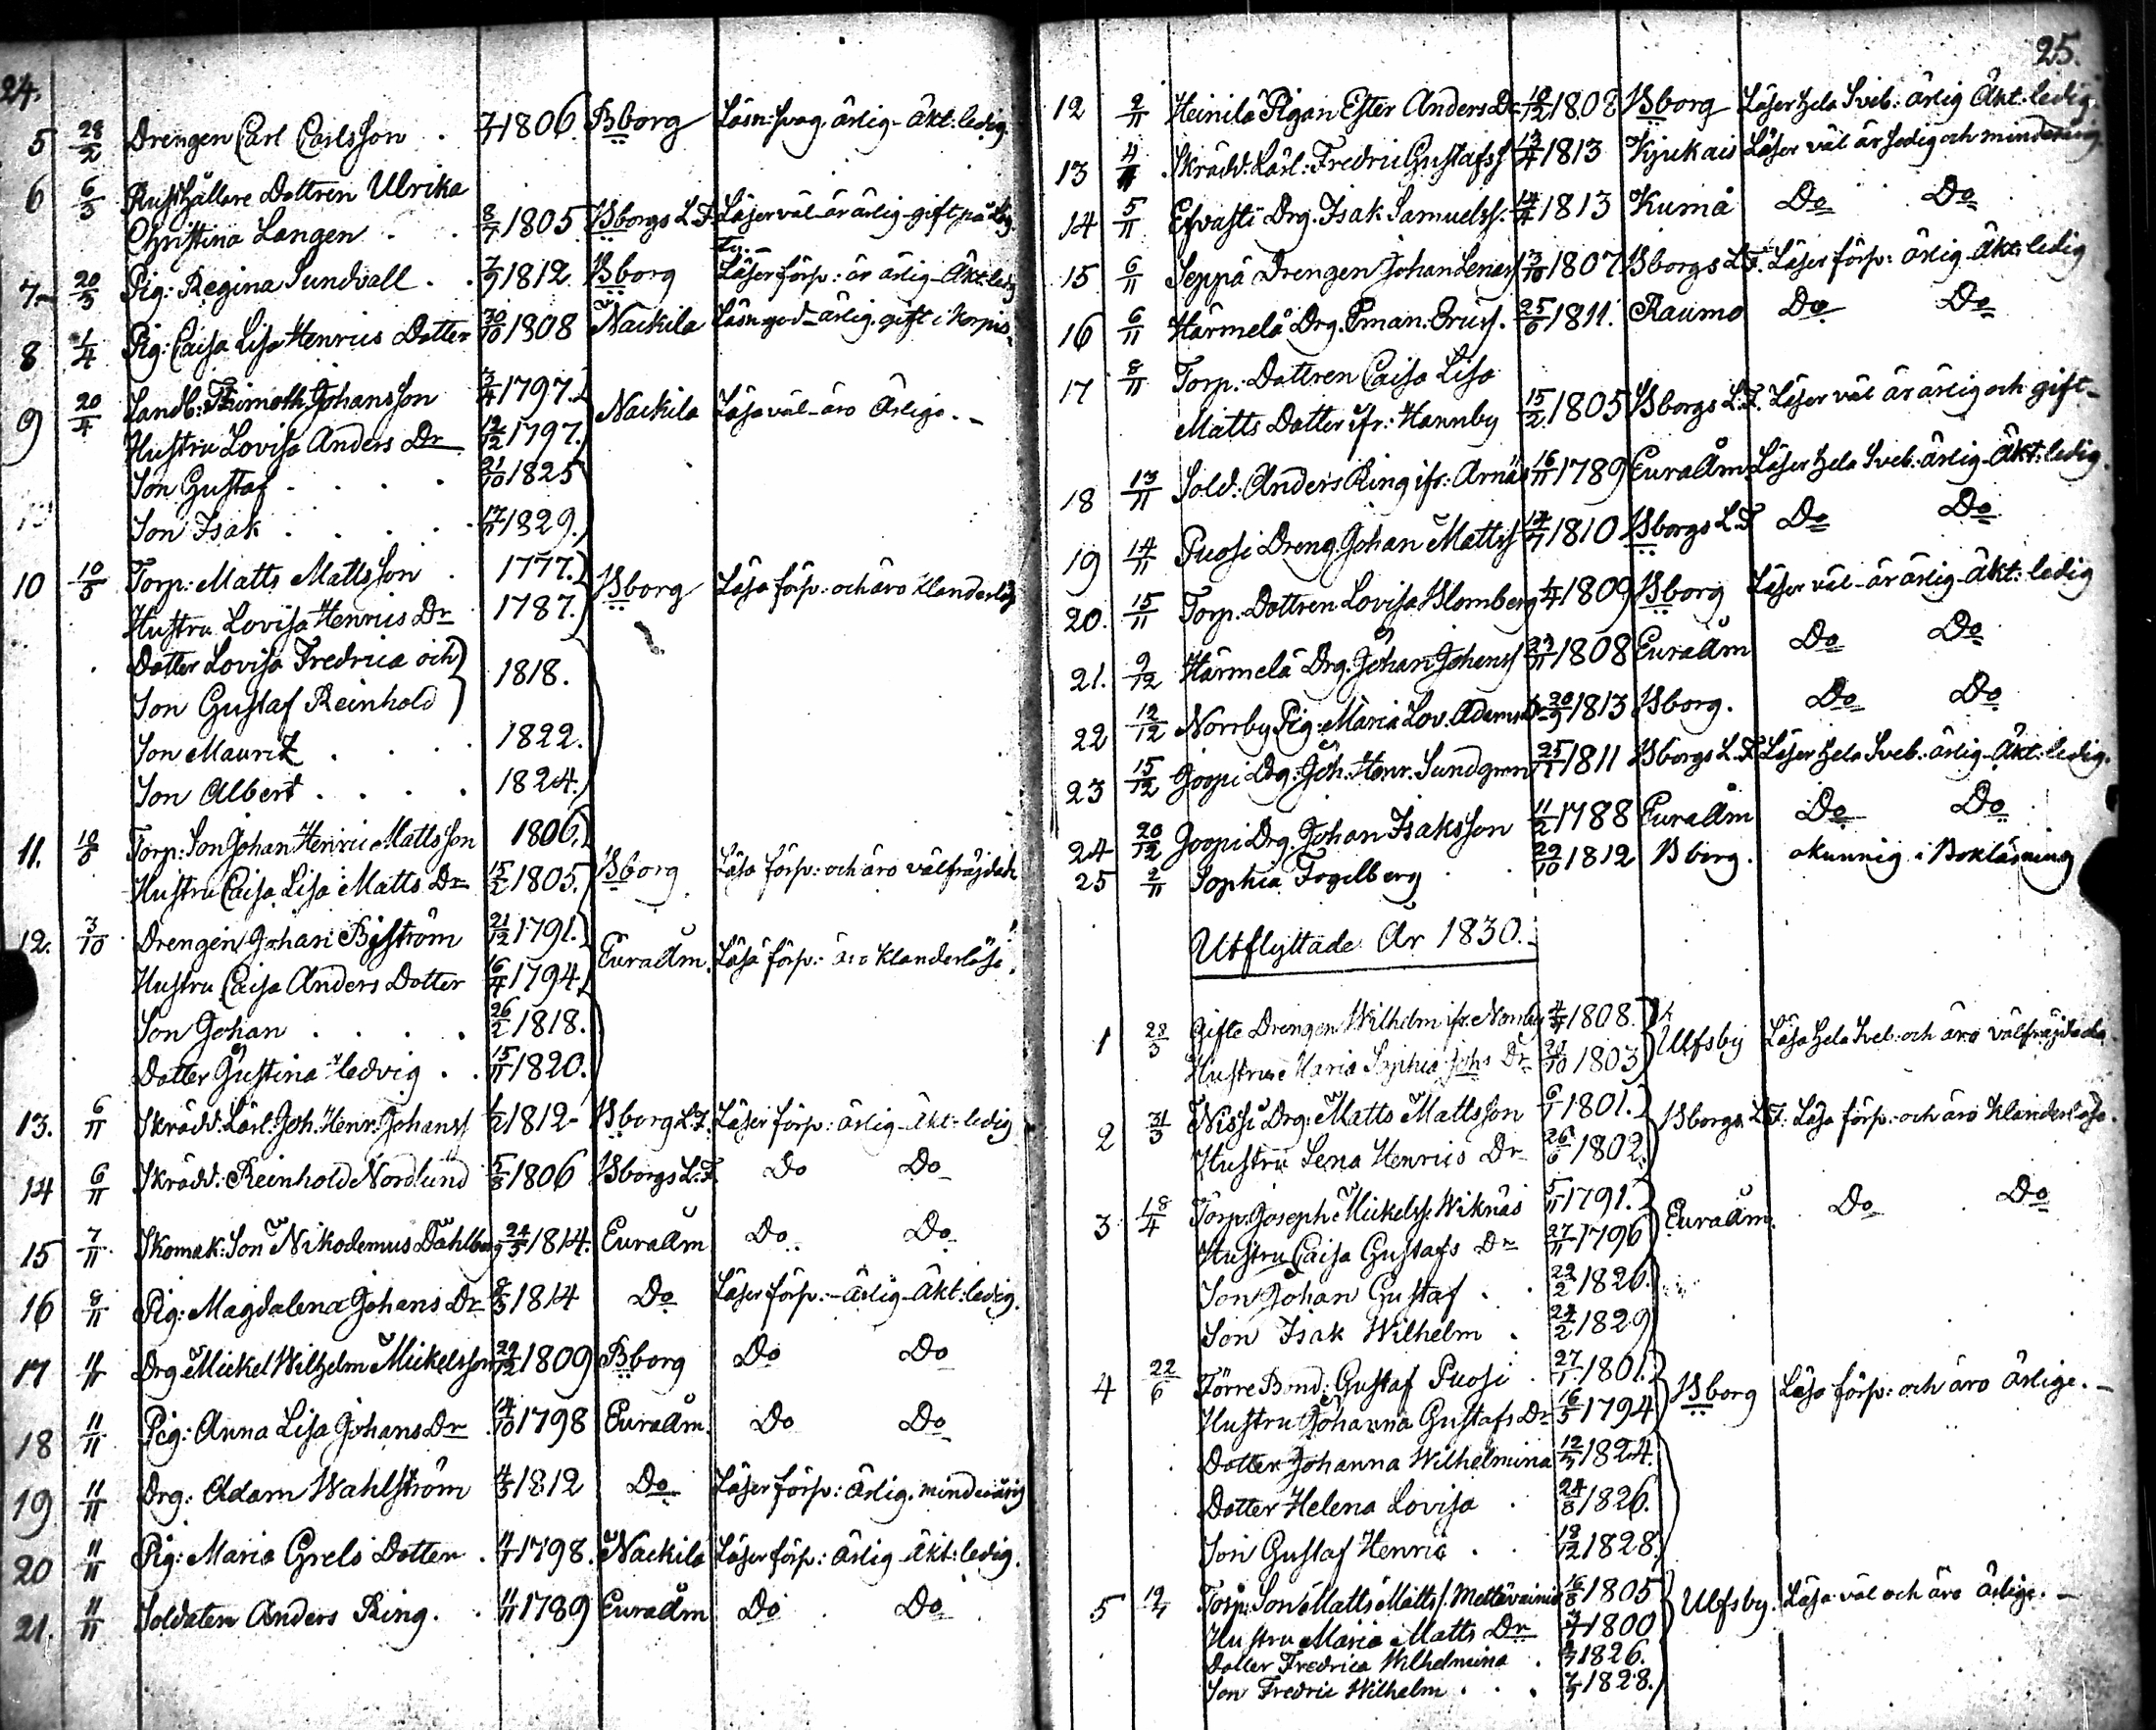 24.
5 28/2 Drengen Carl Carlsson . 1806. Bborg Läsn: svag ärlig - Äkt: ledig
6 6/3 Rusthållare Dottren Ulrika
Christina Langen . . 8/7 1805 Bborgs L.F. Läser väl - är ärlig - gift på
7 20/3 Pig: Regina Sundvall . . 1812. Bborg Läser förs: är ärlig - Äkt: ledig
8 1/4 Pig: Caisa Lisa Henrics Dotter 30/10 1808 Nackila Läsn: god - ärlig. gift i
9 20/4 Landb: Thimoth. Johansson 3/4 1797. Nackila Läsa väl - äro Ärlige. -
Hustru Lovisa Anders Dr 12/12 1797.
Son Gustaf . . . . 21/10 1825
Son Isak . . . . . 1829.
10 10/5 Torp: Matts Mattsson . 1777. Bborg Läsa förs: och äro klanderlös
Hustru Lovisa Henrics Dr 1787.
Dotter Lovisa Fredrica och
Son Gustaf Reinhold 1818.
Son Mauritz . . . . 1822.
Son Albert . . . . 1824.
11. 10/5 Torp: Son Johan Henric Mattsson 1806. Bborg Läsa förs: och äro välfrejdade
Hustru Caisa Lisa Matts Dr 15/2 1805.
12. 3/10 Drengen Johan Biström 21/12 1791. Euraåm. Läsa förs: äro klanderlöse.
Hustru Caisa Anders Dotter 16/4 1794.
Son Johan . . . . 26/2 1818.
Dotter Gustina Hedvig . . 15/11 1820.
13. 6/11 Skrädd: Lärl: Joh. Henr. Johanss 1812 - Bborg L.F. Läser förs: ärlig - Äkt: ledig
14 6/11 Skrädd: Reinhold Nordlund 5/8 1806 Bborgs L.F. Do Do
15 7/11 Skomak: Son Nikodemus Dahlberg 24/5 1814. Euraåm Do Do
16 8/11 Pig: Magdalena Johans Dr 1814 Do Läser förs: - ärlig - Äkt: ledig.
17 11/11 Drg Mickel Wilhelm Mickelsson 29/12 1809 Bborg Do Do
18 11/11 Pig: Anna Lisa Johans Dr 14/10 1798 Euraåm. Do Do
19 11/11 Drg: Adam Wahlström 1812 Do Läser förs: Ärlig. minderårig
20 11/11 Pig: Maria Grels Dotter . 1798. Nackila Läser förs: Ärlig - Äkt: ledig.
21. 11/11 Soldaten Anders Ring. . 1789 Euraåm Do Do
25.
12 2/11 Heinilä Pigan Ester Anders Dr 1808 Bborg Läser hela Sveb: ärlig Äkt: ledig
13 4/11 Skrädd: Lärl: Fredric Gustafss 13/4 1813 Kjukais Läser väl är sedig och minderårig
14 5/11 Efvasti Drg. Isak Samuelss. 14/4 1813 Kumå Do Do
15 6/11 Seppä Drengen Johan Lenass 3/10 1807 Bborgs L.F. Läser förs: ärlig Äkt: ledig
16 6/11 Härmelä Drg. Eman: Ericss. 25/6 1811. Raumo Do Do
17 8/11 Torp: Dottren Caisa Lisa
Matts Dotter ifr: Hannby 15/2 1805 Bborgs L.F. Läser väl är ärlig och gift -
18 13/11 Sold: Anders Ring ifr: Arnäs 16/11 1789 Euraåm Läser hela Sveb: ärlig - Äkt: ledig.
19 14/11 Puosi Dreng Johan Mattss 1810 Bborgs L.F. Do Do
20. 15/11 Torp. Dottren Lovisa Blomberg 1809 Bborg Läser väl - är ärlig - Äkt: ledig
21. 9/12 Härmelä Drg. Johan Johanss 23/11 1808 Euraåm Do Do
22 12/12 Norrby Pig: Maria Lov. Adams Dr 20/9 1813 Bborg. Do Do
23 15/12 Goopi Drg: Joh: Henr. Sundgren 1811 Bborgs L.F. Läser hela Sveb: ärlig - Äkt: ledig.
24 20/12 Goopi Drg. Johan Isaksson 11/2 1788 Euraåm Do Do
25 2/11 Sophia Fogelberg . . 29/10 1812 Bborg. okunnig i Bokläsning
Utflyttade År 1830.
1 28/3 Gifte Drengen Wilhelm ifr: Norrby 1808. Ulfsby Läsa hela Sveb: och äro välfrejdade.
Hustru Maria Sophia Johs Dr 1803
2 31/3 Nissi Drg: Matts Mattsson 6/1 1801. Bborgs L.F. Läsa förs: och äro klanderlöse.
Hustru Lena Henrics Dr 26/6 1802.
3 18/4 Torp: Joseph Mickelss: Wiknäs 5/11 1791. Euraåm. Do Do
Hustru Caisa Gustafs Dr 27/11 1796
Son Johan Gustaf . . 22/2 1826.
Son Isak Wilhelm . 24/2 1829
4 22/6 Förre Bond: Gustaf Puosi . 27/1 1801. Bborg Läsa förs: och äro ärlige. -
Hustru Johanna Gustafs Dr 16/5 1794
Dotter Johanna Wilhelmina 1824.
Dotter Helena Lovisa . 24/8 1826.
Son Gustaf Henric . . 18/12 1828.
5 Torp: Son Matts Matts/. Mettävainio 16/8 1805 Ulfsby. Läsa väl och äro ärlige. -
Hustru Maria Matts Dr 1800
Dotter Fredrica Wilhelmina . 1826.
Son Fredric Wilhelm . . . 1828.